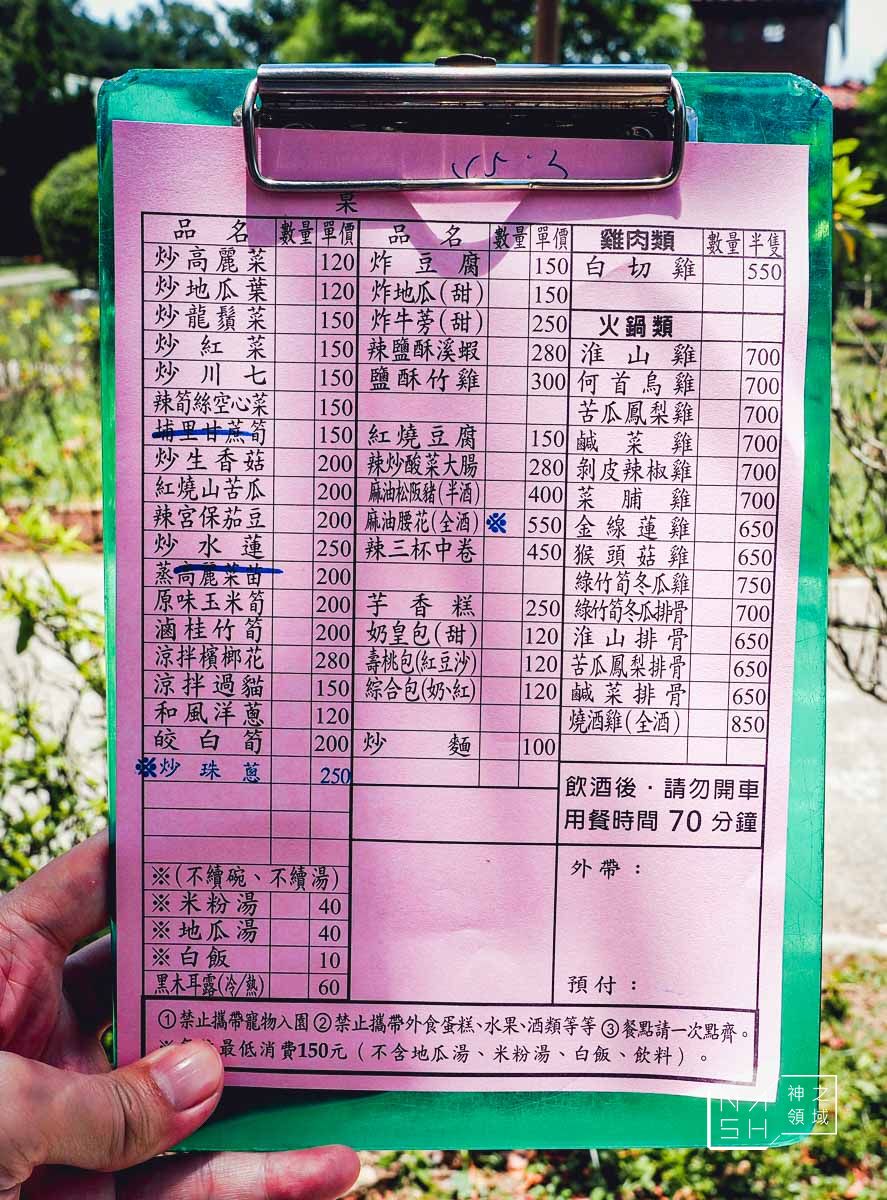 菜
品名 數量 單價
炒高麗菜 120
炒地瓜葉 120
炒龍鬚菜 150
炒紅菜 150
炒川七 150
辣筍絲空心菜 150
埔里甘蔗筍 150
炒生香菇 200
紅燒山苦瓜 200
辣宮保茄豆 200
炒水蓮 250
蒸高麗菜苗 200
原味玉米筍 200
滷桂竹筍 200
涼拌檳榔花 280
涼拌過貓 150
和風洋蔥 120
皎白筍 200
※炒珠蔥 250
※(不續碗、不續湯)
※米粉湯 40
※地瓜湯 40
※白飯 10
黑木耳露(冷/熱) 60
品名 數量 單價
炸豆腐 150
炸地瓜(甜) 150
炸牛蒡(甜) 250
辣鹽酥溪蝦 280
鹽酥竹雞 300
紅燒豆腐 150
辣炒酸菜大腸 280
麻油松阪豬(半酒) 400
麻油腰花(全酒) ※ 550
辣三杯中卷 450
芋香糕 250
奶皇包(甜) 120
壽桃包(紅豆沙) 120
綜合包(奶、紅) 120
炒麵 100
雞肉類 數量 半隻
白切雞 550
火鍋類
淮山雞 700
何首烏雞 700
苦瓜鳳梨雞 700
鹹菜雞 700
剝皮辣椒雞 700
菜脯雞 700
金線蓮雞 650
猴頭菇雞 650
綠竹筍冬瓜雞 750
綠竹筍冬瓜排骨 700
淮山排骨 650
苦瓜鳳梨排骨 650
鹹菜排骨 650
燒酒雞(全酒) 850
飲酒後·請勿開車
用餐時間 70 分鐘
外帶：
預付：
①禁止攜帶寵物入園②禁止攜帶外食蛋糕、水果、酒類等等③餐點請一次點齊。
最低消費150元（不含地瓜湯、米粉湯、白飯、飲料）。
NASH
神之
領域